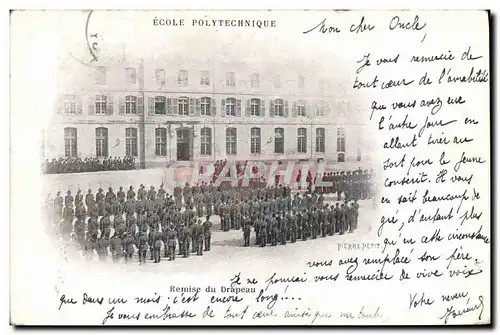 ÉCOLE POLYTECHNIQUE
Mon cher Oncle,
Je vous remercie de
tout cœur de l'amabilité
que vous avez eue
l'autre jour en
allant tirer au
sort pour le jeune
conscrit. Il vous
en sait beaucoup de
gré, d'autant plus
qu'en cette circonstance
vous avez remplacé son père.
Je ne pourrai vous remercier de vive voix
que dans un mois, c'est encore long....
Je vous embrasse de tout cœur ainsi que ma tante.
Votre neveu,
CARPH
PIERRE PETIT
Remise du Drapeau